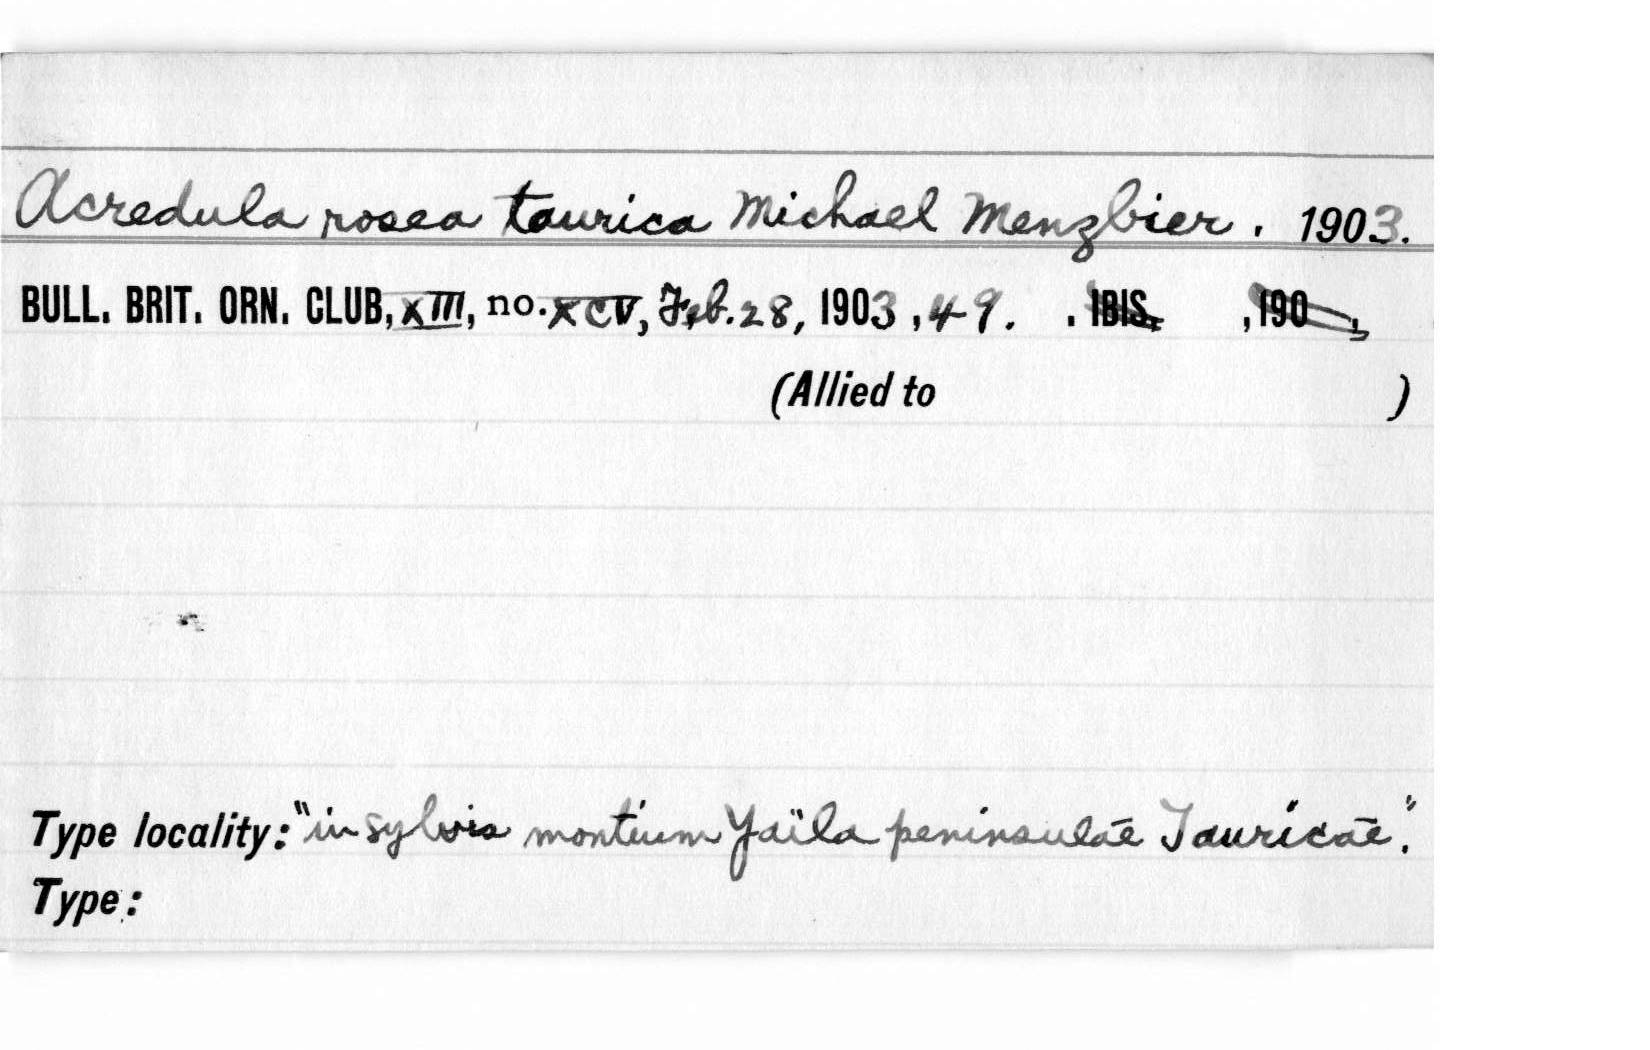 Acredula rosea taurica Michael Menzbier. 1903.
BULL. BRIT. ORN. CLUB, XIII, no. XCV, Feb. 28, 1903, 49. . IBIS, , 190 ,
(Allied to )
Type locality: "in sylvis montium Yaïla peninsulae Tauricae".
Type: